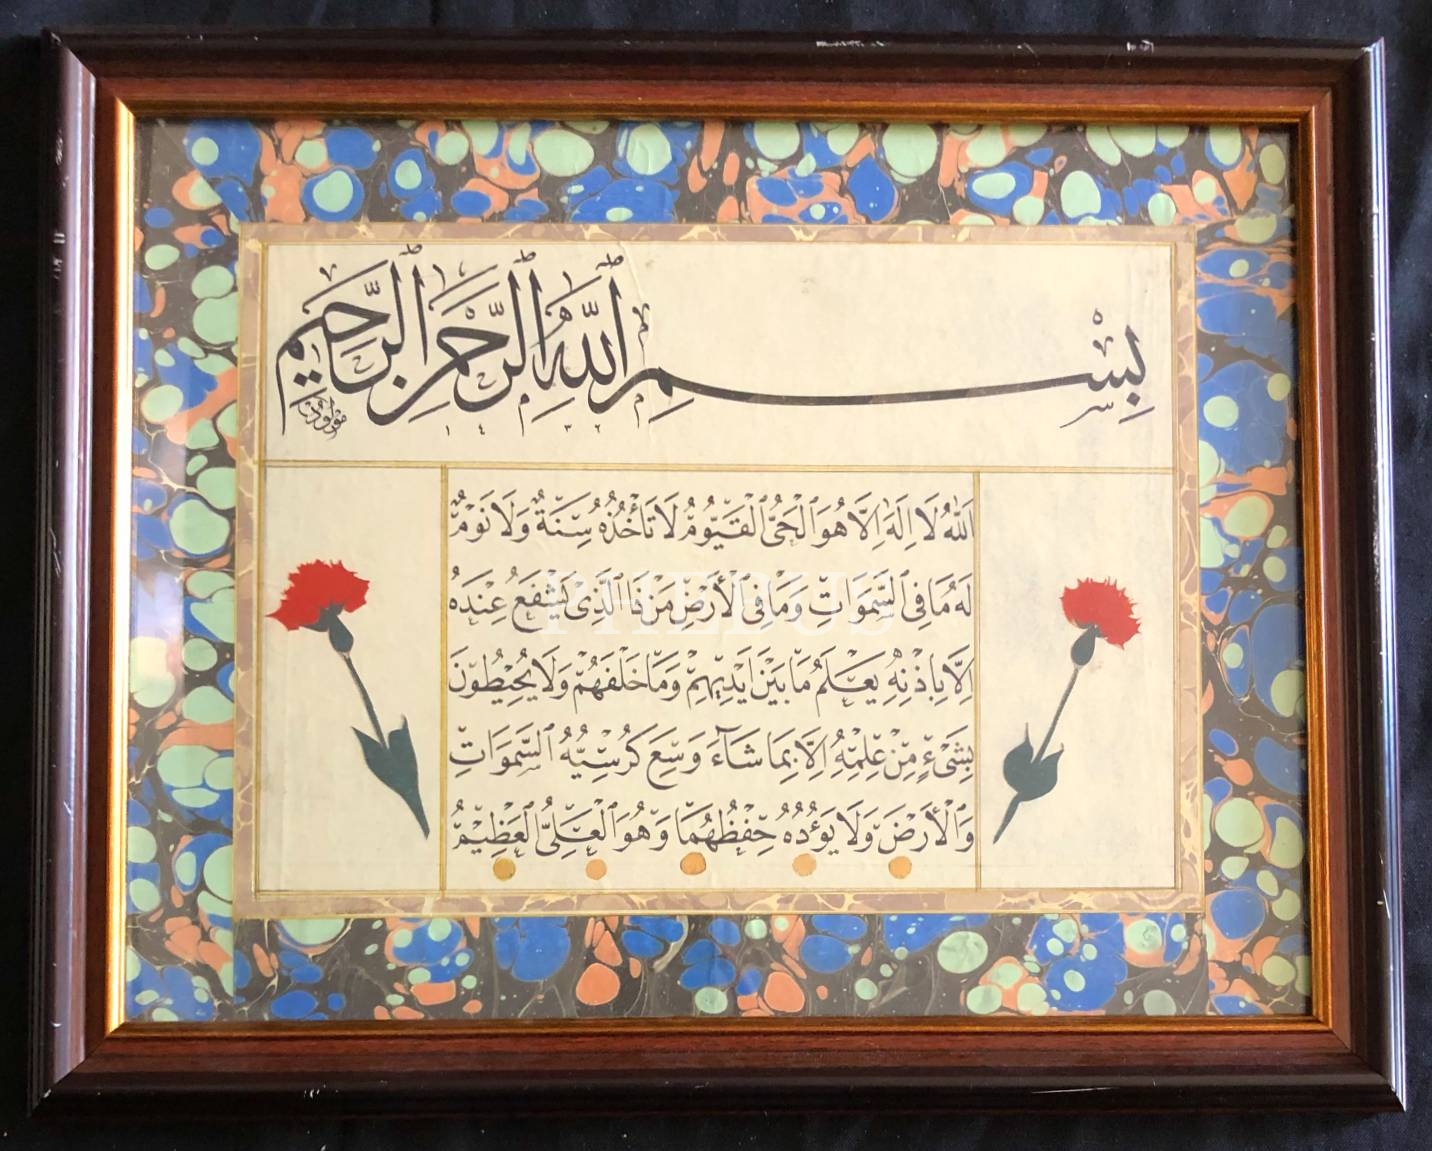 بِسْمِ ٱللّٰهِ ٱلرَّحْمٰنِ ٱلرَّحِيمِ
١٤٣٢
ٱللّٰهُ لَا اِلٰهَ اِلَّا هُوَ ٱلْحَىُّ ٱلْقَيُّومُ لَا تَأْخُذُهُ سِنَةٌ وَلَا نَوْمٌ
لَهُ مَا فِى ٱلسَّمٰوَاتِ وَمَا فِى ٱلْأَرْضِ مَنْ ذَا ٱلَّذِى يَشْفَعُ عِنْدَهُ
اِلَّا بِاِذْنِهِ يَعْلَمُ مَا بَيْنَ اَيْدِيهِمْ وَمَا خَلْفَهُمْ وَلَا يُحِيطُونَ
بِشَىْءٍ مِنْ عِلْمِهِ اِلَّا بِمَا شَاءَ وَسِعَ كُرْسِيُّهُ ٱلسَّمٰوَاتِ
وَٱلْأَرْضَ وَلَا يَؤُدُهُ حِفْظُهُمَا وَهُوَ ٱلْعَلِىُّ ٱلْعَظِيمُ
PHEBUS